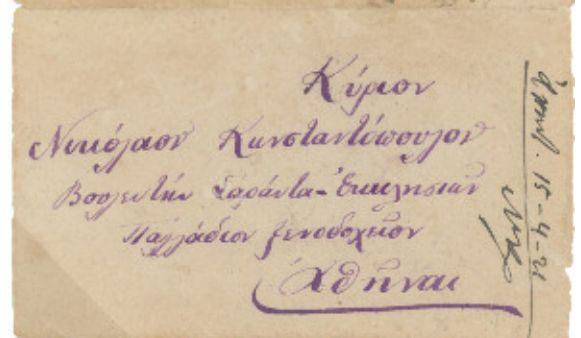 Κύριον
Νικόλαον Κωνσταντόπουλον
Βουλευτὴν Σαράντα-Ἐκκλησιῶν
Παλλάδιον ξενοδοχεῖον
Ἀθήναι
ἀπαντ. 15-4-21